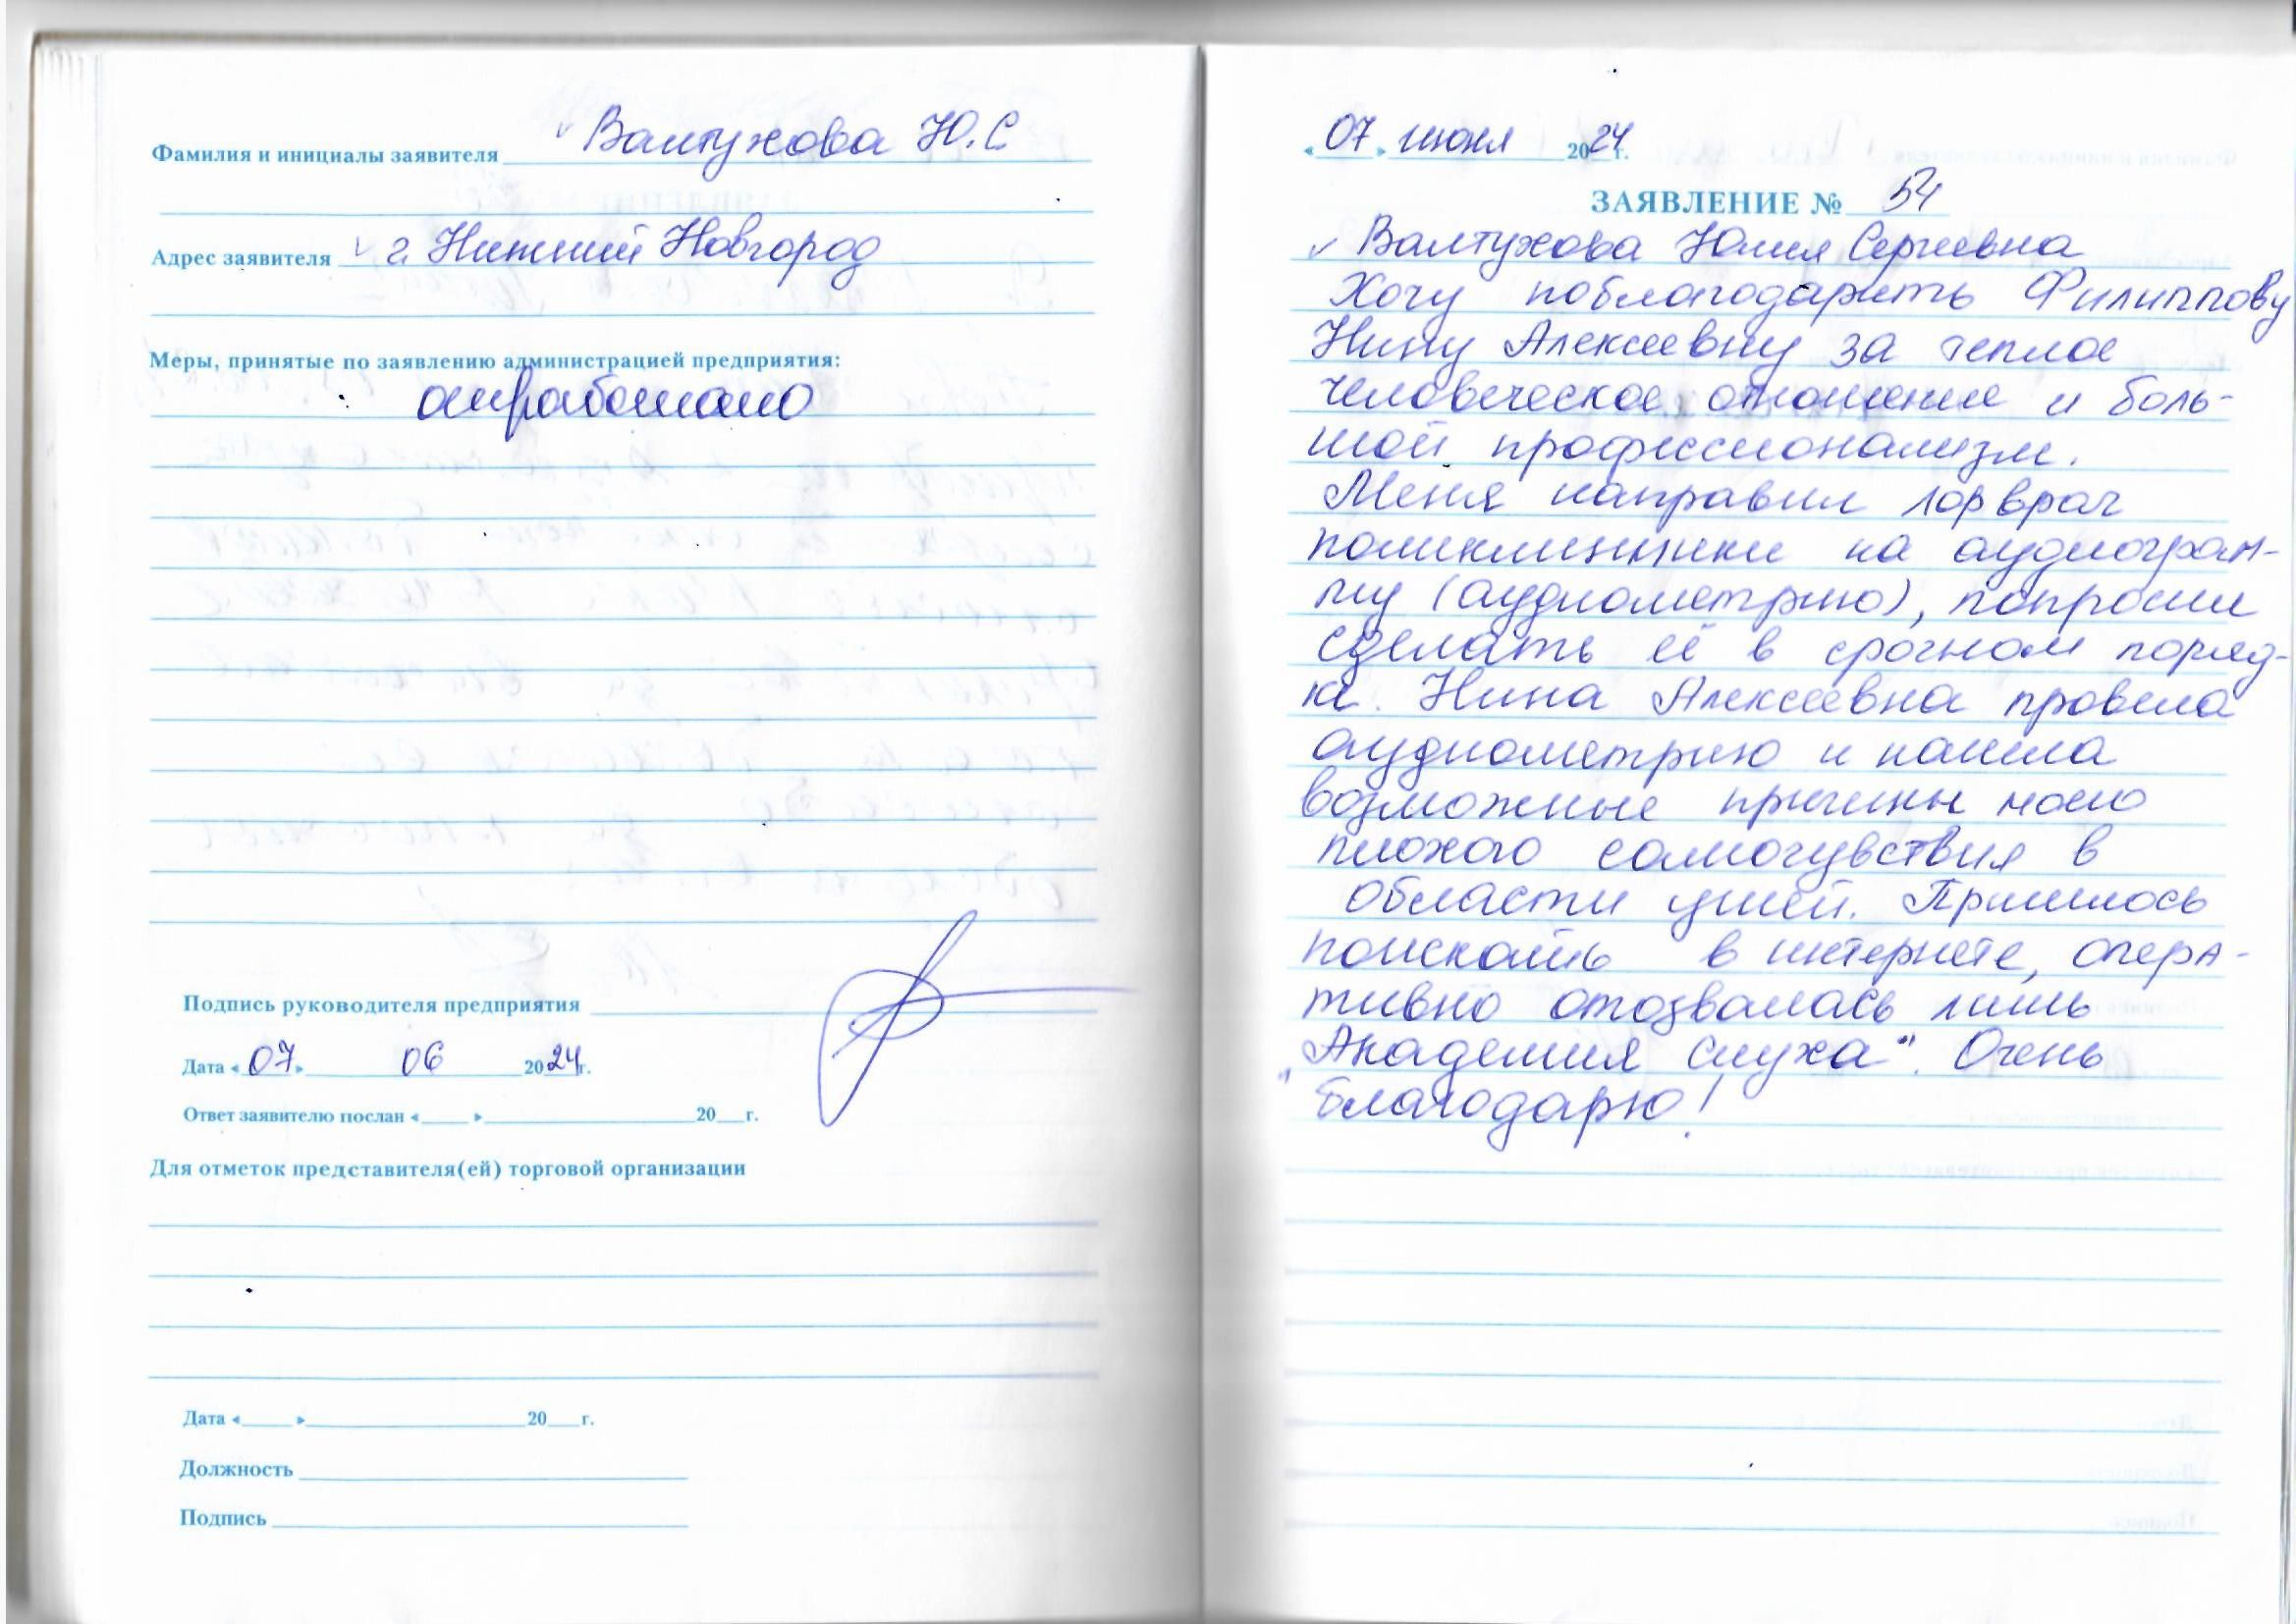 Фамилия и инициалы заявителя Валтухова Ю.С
Адрес заявителя г. Нижний Новгород
Меры, принятые по заявлению администрацией предприятия:
отработано
Подпись руководителя предприятия
Дата «07» 06 2024г.
Ответ заявителю послан «____» ____ 20__г.
Для отметок представителя(ей) торговой организации
Дата «____» ____ 20__г.
Должность
Подпись
«07» июня 2024г.
ЗАЯВЛЕНИЕ № 54
Валтухова Юлия Сергеевна
Хочу поблагодарить Филиппову
Нину Алексеевну за теплое
человеческое отношение и боль-
шой профессионализм.
Меня направил лор врач
поликлиники на аудиограм-
му (аудиометрию), попросил
сделать её в срочном поряд-
ке. Нина Алексеевна провела
аудиометрию и нашла
возможные причины моего
плохого самочувствия в
области ушей. Пришлось
поискать в интернете, опера-
тивно отозвалась лишь
"Академия слуха". Очень
благодарю!